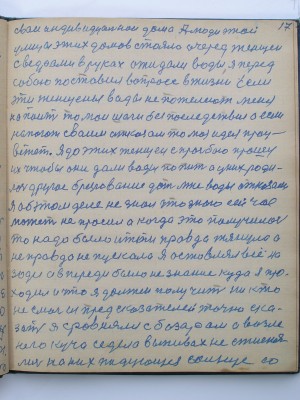 17
свои индивидуальной дома А подножной
улице этих домов стояло очередь женщен
с ведрами в руках ожидали воды я перед
собою поставил вопрос в жизни Если
эти женщены воды не пожелают меня
напоит то мои шаги без последствия а если
напоют своим отказам то моя идея
цветет. Я до этих женщен с прозбою прошу
их чтобы они дали воды попит а у них роди-
лос другое брезование дат мне воды отказали
Я об этом деле не знал этого сей час
может не просил а когда это получилос
то надо было итти правда тянула а
не правда не пускала Я оставлял всё на
ходу а впереди было не знание куда я про-
ходил и што я должен получит ни кто
не смог из предсказателей точно ска-
зат Я сровнялся с базаром а возле
него куча седела выпивах не стисня-
лис на них идующея солнце со